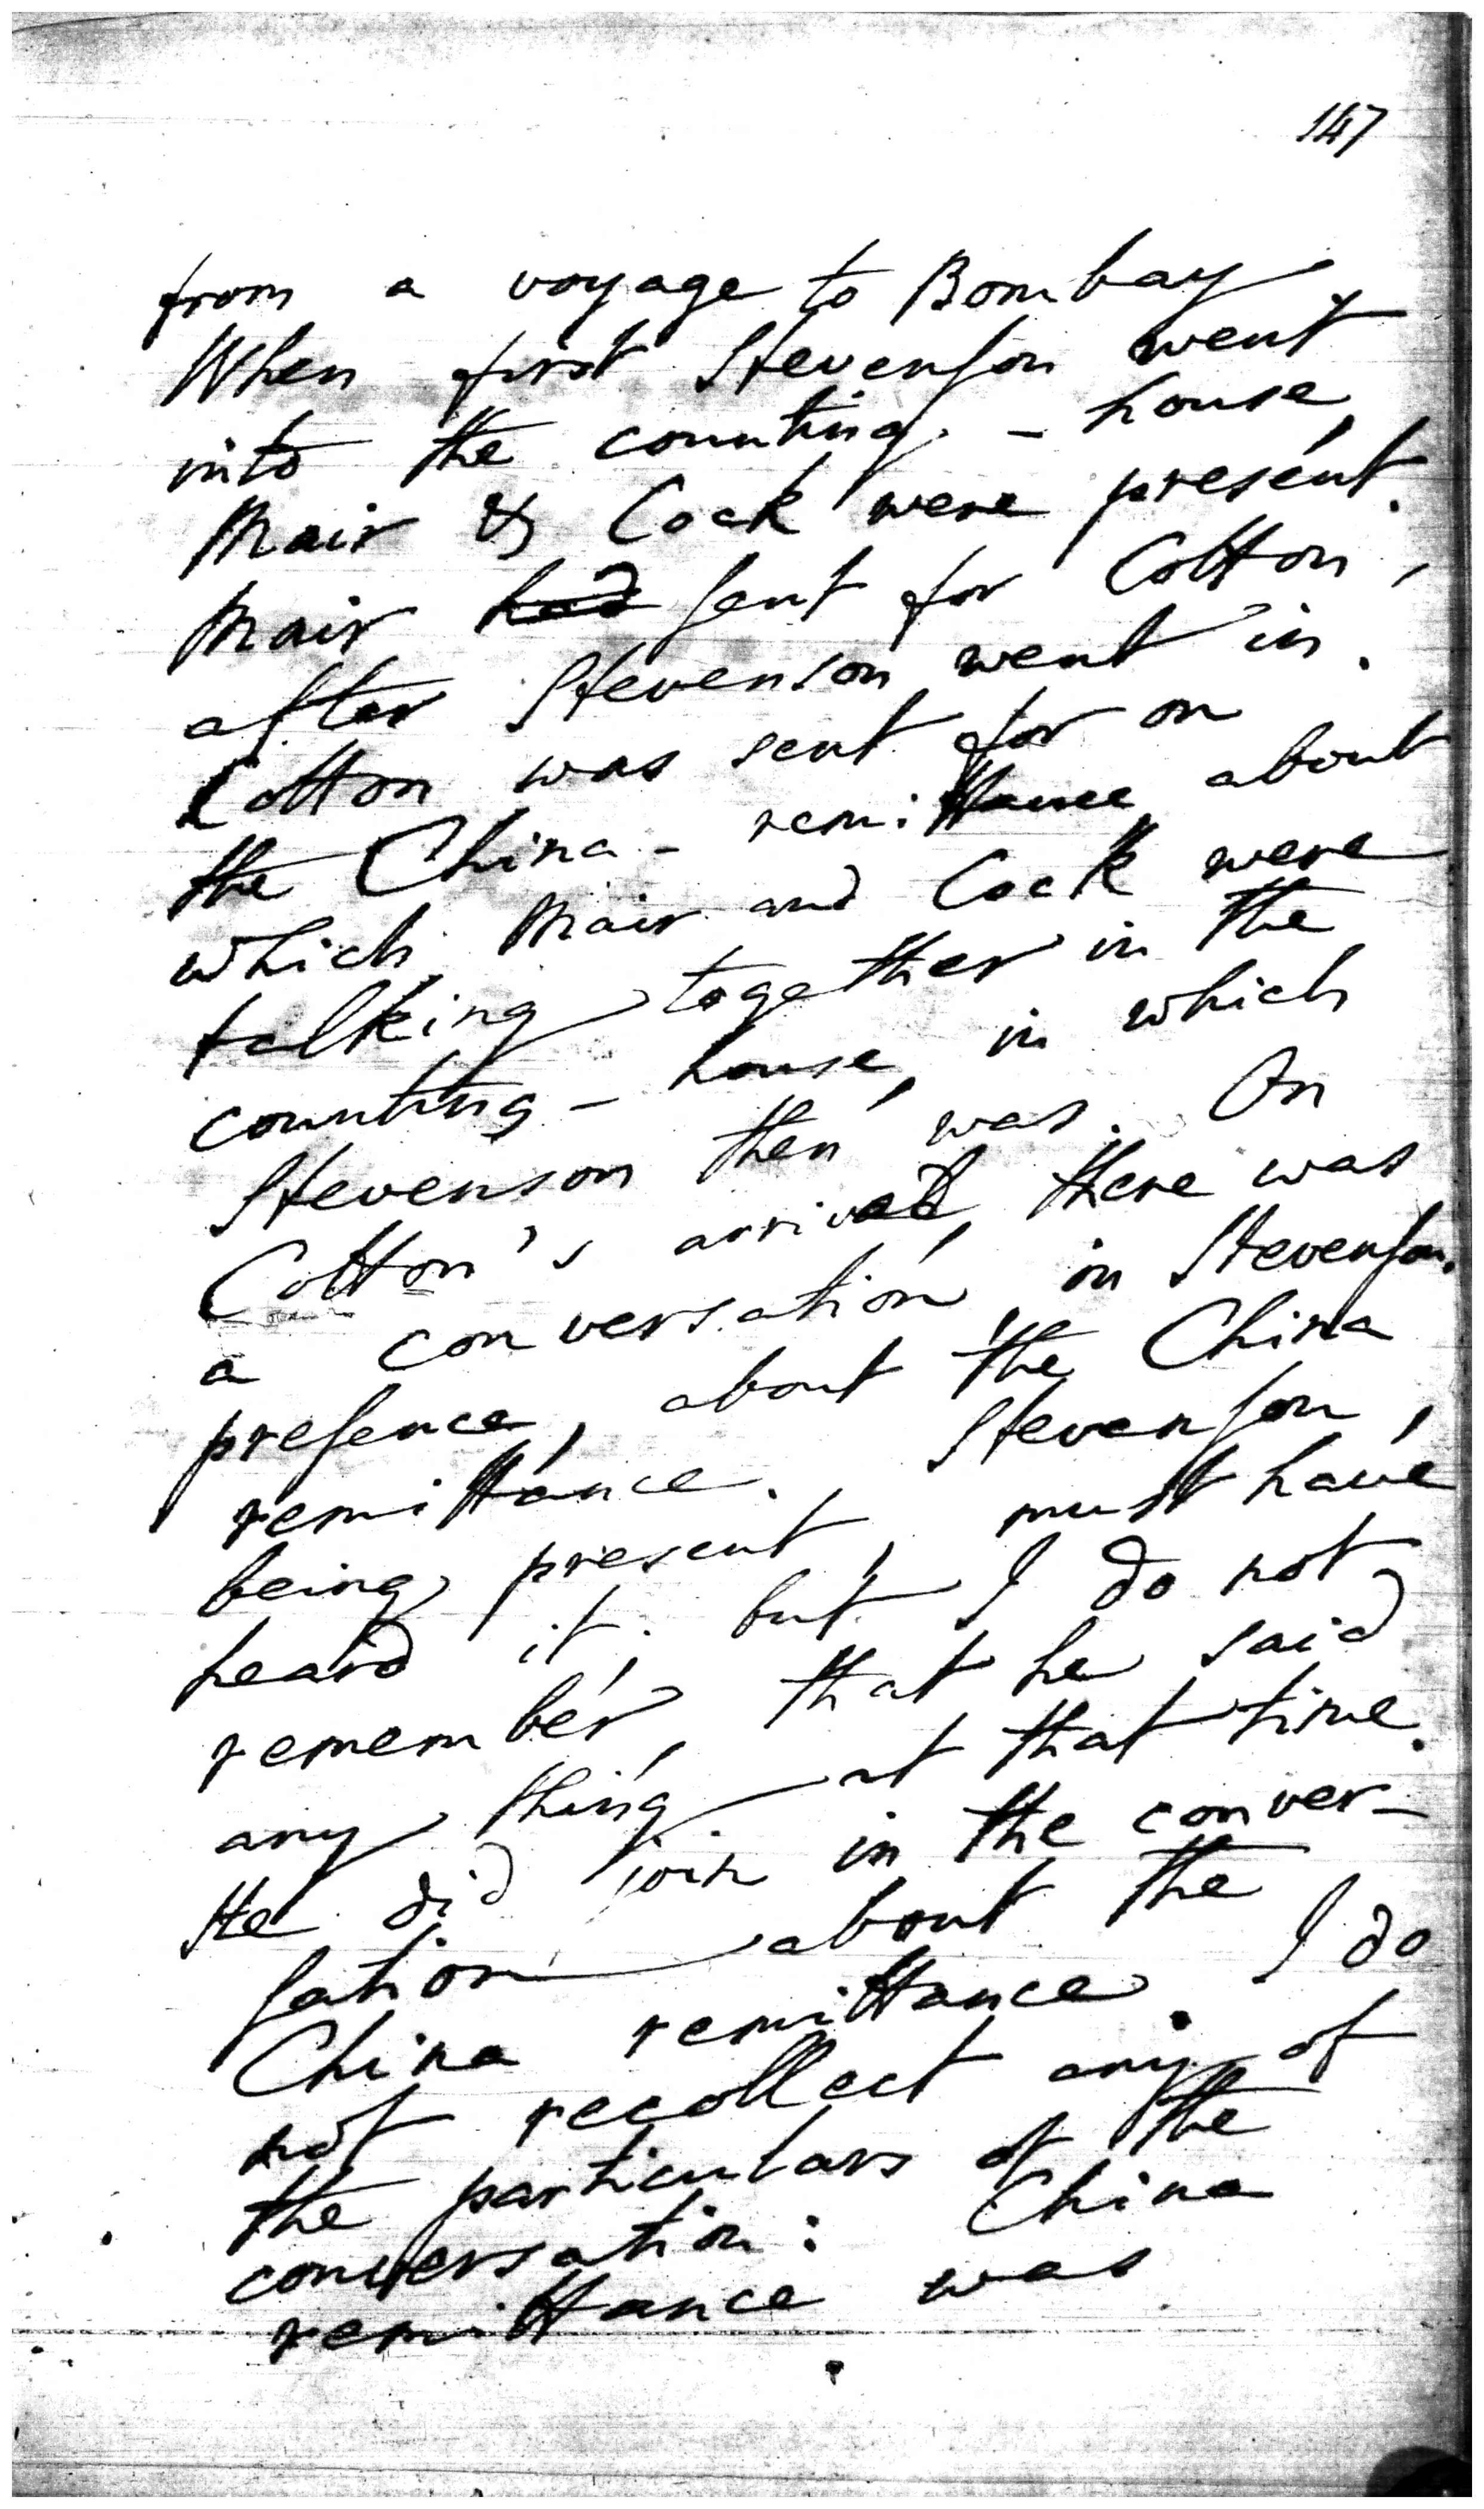 147
from a voyage to Bombay.
When first Stevenson went
into the counting-house,
Mair & Cock were present.
Mair had sent for Cotton,
after Stevenson went in.
Cotton was sent for on
the China-remittance about
which Mair and Cock were
talking together in the
counting-house, in which
Stevenson then was. On
Cotton's arrival, there was
a conversation, in Stevenson.
presence, about the China
remittance. Stevenson,
being present, must have
heard it; but I do not
remember, that he said
any thing at that time.
He did join in the conver-
sation about the
China remittance. I do
not recollect any of
the particulars of the
conversation: China
remittance was